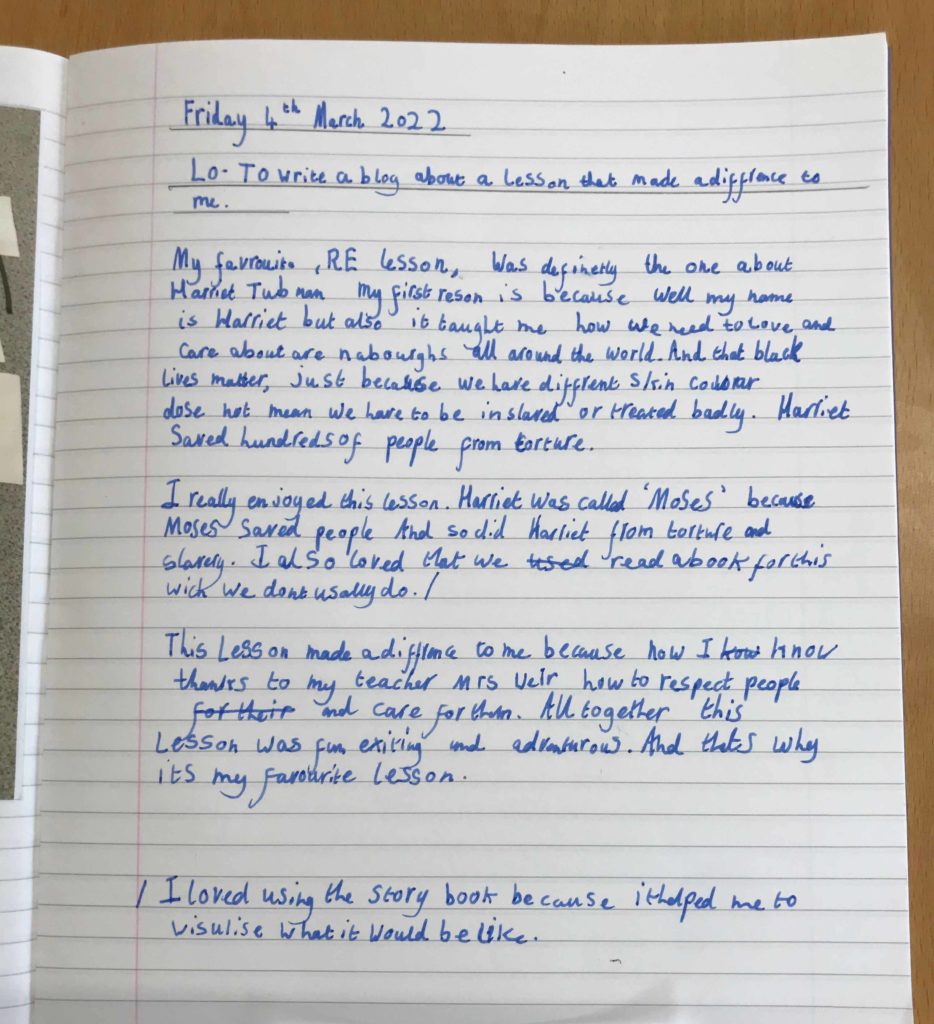 Friday 4th March 2022
Lo- To write a blog about a lesson that made a diffrence to
me.
My favrouite, RE lesson, was definetly the one about
Harriet Tubman My first reson is because well my name
is Harriet but also it taught me how we need to love and
care about are nabourghs all around the world. And that black
lives matter, just because we have diffrent skin colour
dose not mean we have to be inslaved or treated badly. Harriet
Saved hundreds of people from torture.
I really enjoyed this lesson. Harriet was called 'Moses' because
Moses saved people And so did Harriet from torture and
slavery. I also loved that we used read a book for this
wich we dont usally do. /
This Lesson made a diffrence to me because now I know know
thanks to my teacher Mrs Weir how to respect people
for their and care for them. All together this
Lesson was fun exiting and adventurous. And thats why
its my favourite lesson.
/ I loved using the story book because it helped me to
visulise what it would be like.